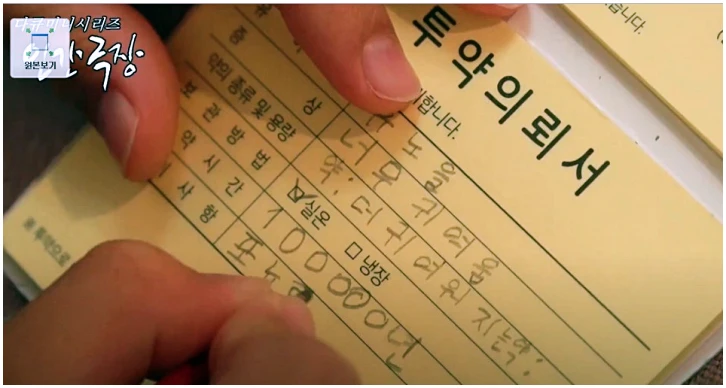 다큐 미니시리즈
인간극장
원본보기
습니다.
투약의뢰서
합니다.
노을
증 상 너무 귀여움
약의 종류 및 용량 더 귀여워지는약;
보관 방법 ☑실온 □냉장
약 시간 100000년
사항
※ 투약으로